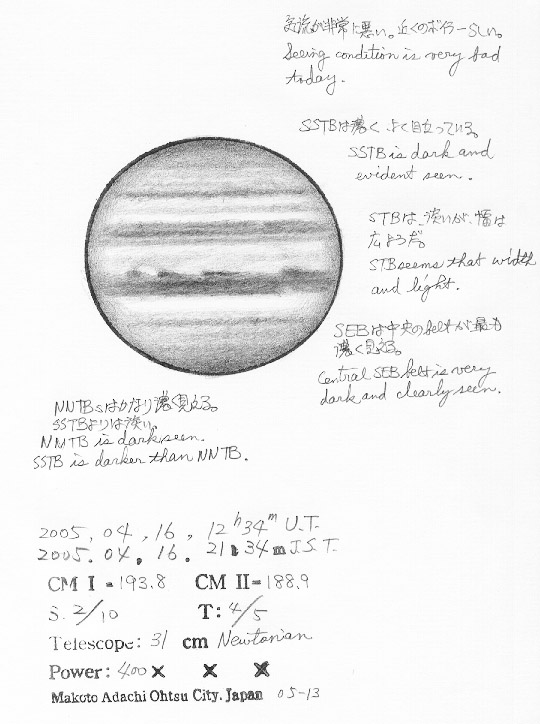 気流が非常に悪い。近くのボイラーらしい。
Seeing condition is very bad
today.
SSTBは濃く、よく目立っている。
SSTB is dark and
evident seen.
STBは、淡いが、幅は
広ようだ。
STB seems that width
and light.
SEBは中央のbeltが最も
濃く見える。
Central SEB belt is very
dark and clearly seen.
NNTBsはかなり濃く見える。
SSTBよりは淡い。
NNTB is dark seen.
SSTB is darker than NNTB.
2005, 04, 16, 12h34m U.T.
2005. 04. 16. 21h34m J.S.T.
CM I = 193.8 CM II= 188.9
S. 2/10 T: 4/5
Telescope: 31 cm Newtonian
Power: 400 × × ×
Makoto Adachi Ohtsu City. Japan 05-13